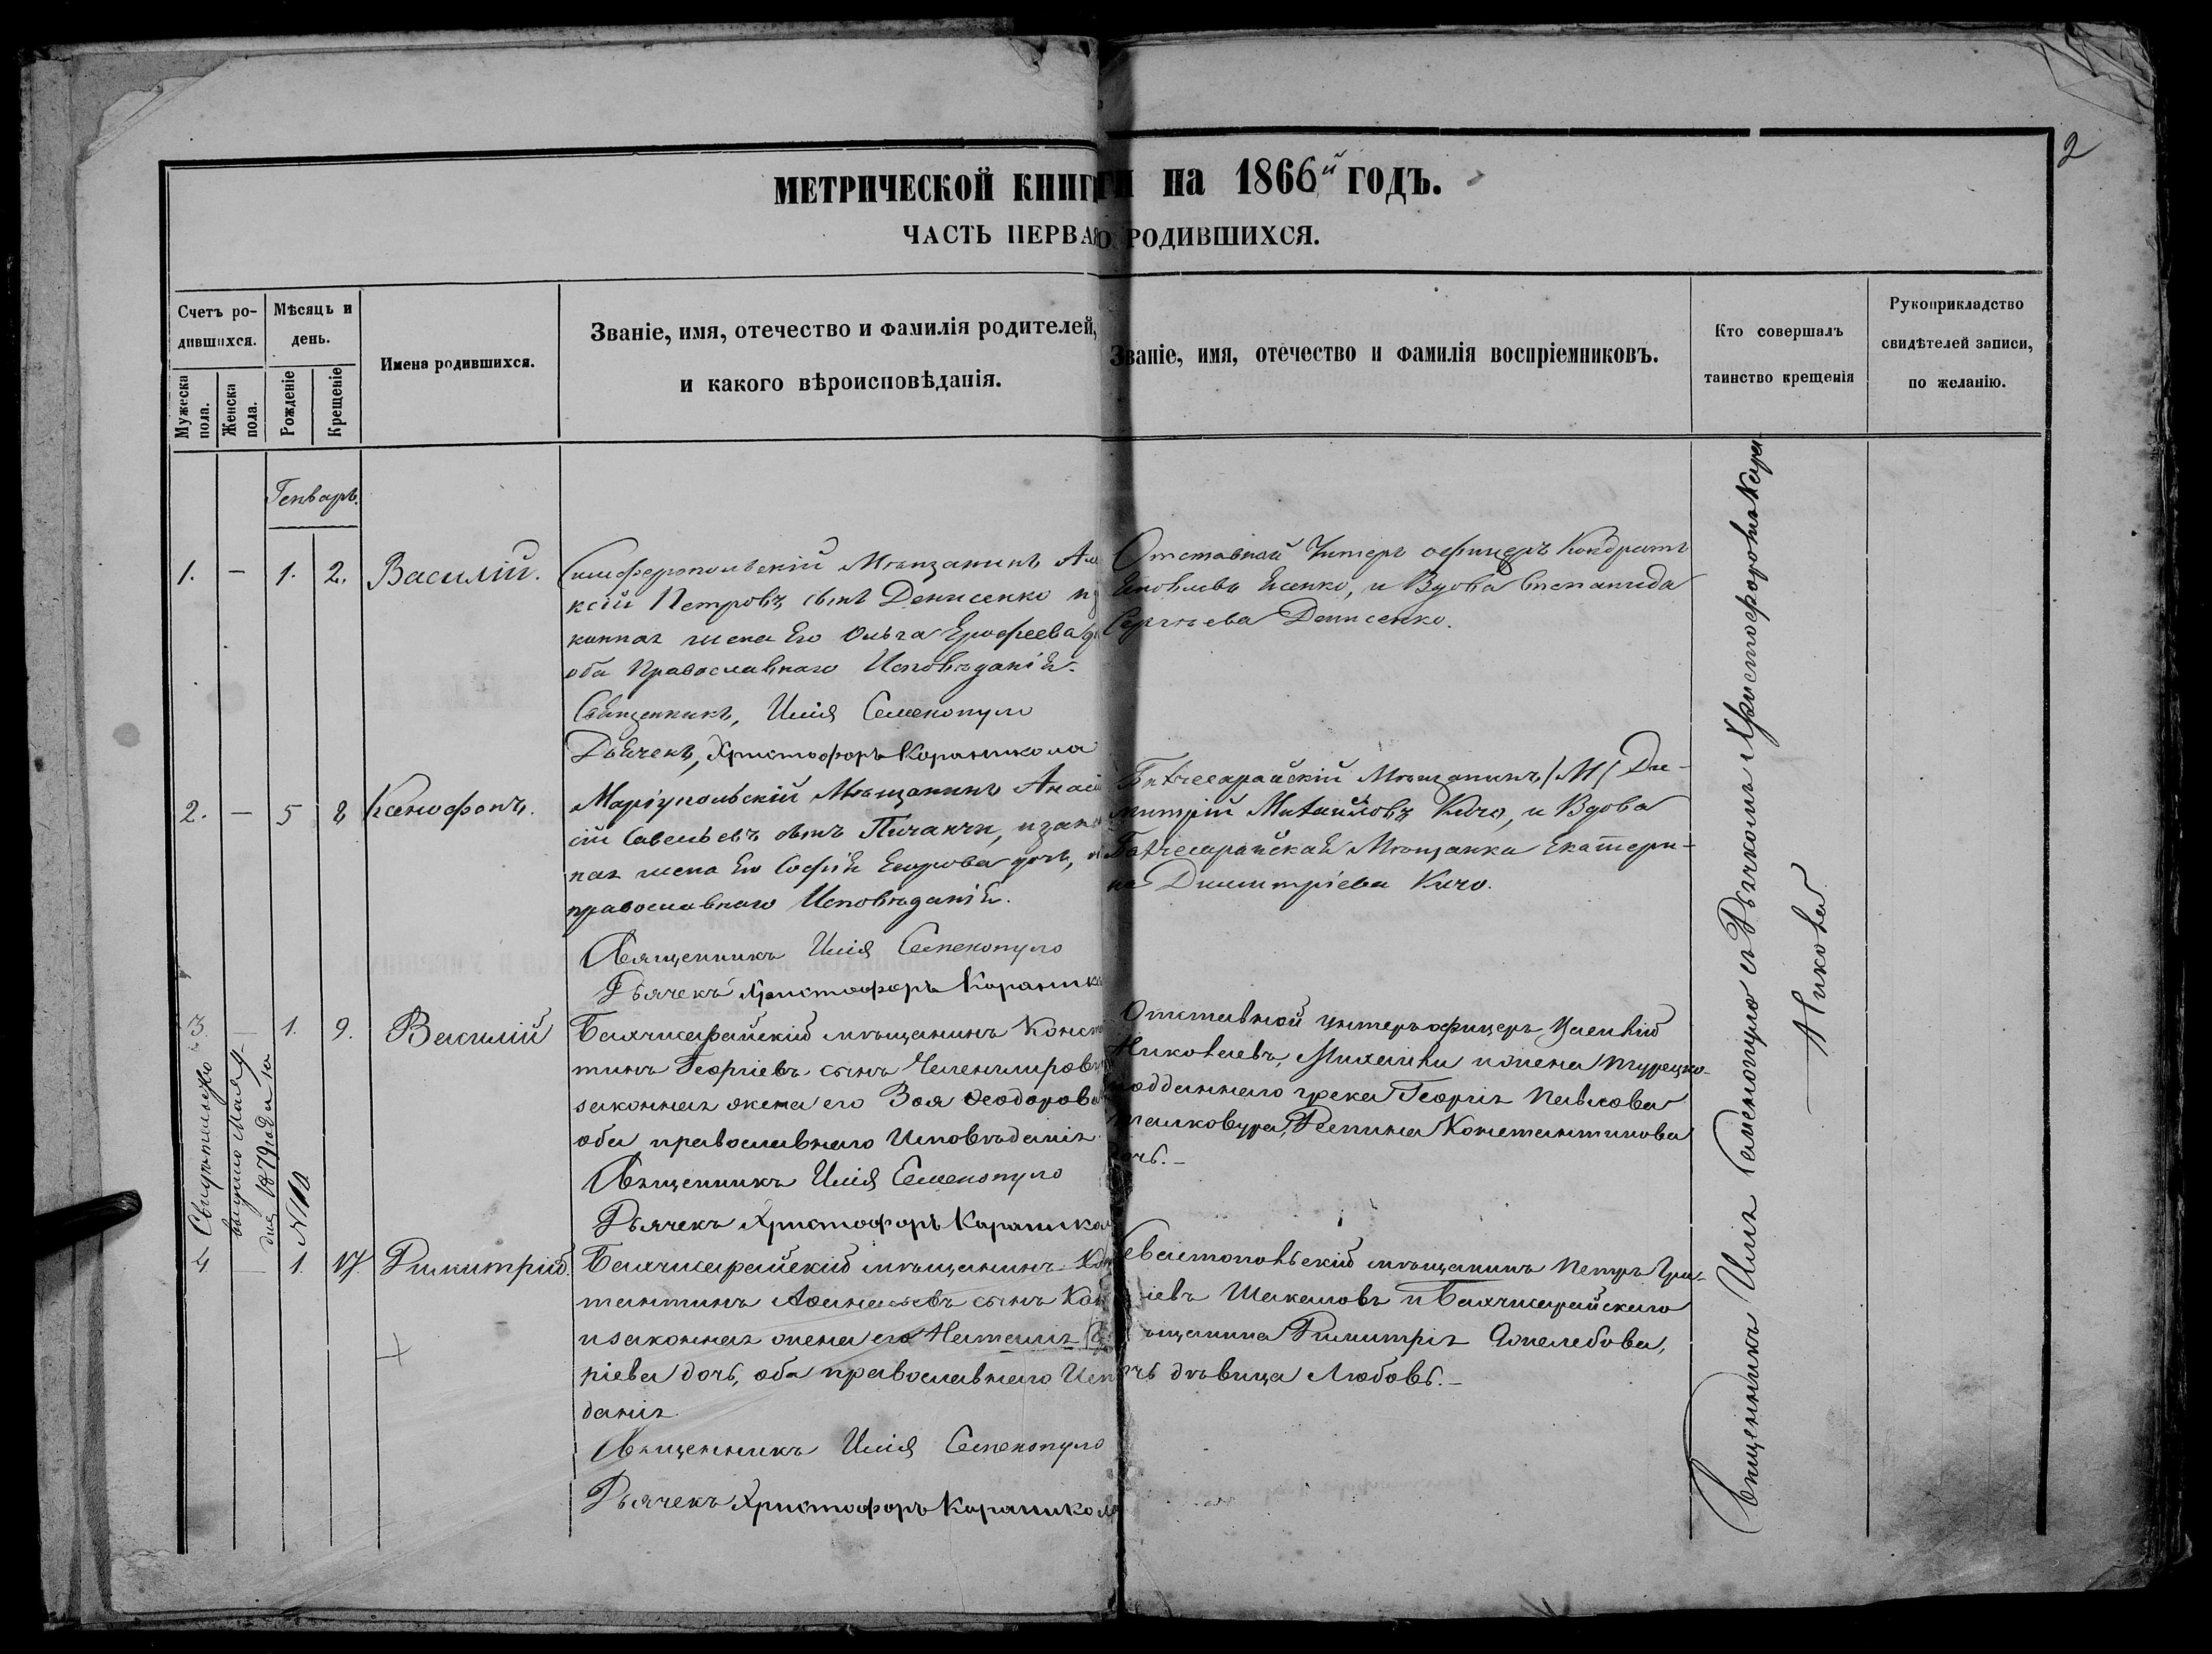 2
МЕТРИЧЕСКОЙ КНИГИ на 1866й ГОДЪ.
ЧАСТЬ ПЕРВАЯ О РОДИВШИХСЯ.
Счетъ ро-
дившихся.
Мужеска пола.
Женска пола.
Мѣсяцъ и
день.
Рожденіе
Крещеніе
Имена родившихся.
Званіе, имя, отечество и фамилія родителей,
и какого вѣроисповѣданія.
Званіе, имя, отечество и фамилія воспріемниковъ.
Кто совершалъ
таинство крещенія
Рукоприкладство
свидѣтелей записи,
по желанію.
Генварь.
1. — 1. 2. Василій.
Симферопольскій Мѣщанинъ Але
ксій Петровъ сынъ Денисенко и з
конная жена Его Ольга Ерофеева
оба Православнаго Исповѣданія.
Священникъ, Илія Семенопуло
Дьячекъ, Христофоръ Караникола
Отставной Унтеръ офицеръ Кондратъ
Яковлевъ Исенко, и Вдова Степанида
Сергѣева Денисенко.
2. — 5 8 Ксенофонъ.
Маріупольскій Мѣщанинъ Анас
сій Савельевъ сынъ Пичакчи, и зако
ная жена Его Софія Егорова дочь,
православнаго Исповѣданія.
Священникъ Илія Семенопуло
Дьячекъ Христофоръ Караник
Бахчесарайскій Мѣщанинъ /М/ Ди-
митрій Михайловъ Кичо, и Вдова
Бахчесарайская Мѣщанка Екатери-
на Димитріева Кичо.
3. — 1. 9. Василій
Бахчисарайскій мѣщанинъ Конст
тинъ Георгіевъ сынъ Челенгировъ
законная жена его Зоя Ѳеодорова
оба православнаго Исповѣданія.
Священникъ Илія Семенопуло
Дьячекъ Христофоръ Караникол
Отставной унтеръ офицеръ
Николаевъ, Михаили и жена турецко-
подданнаго грека Георгія Павлова
Константинова
дочь.—
Свидѣтельство
выдано Мая
дня 1879 года
№
4. — 1. 17. Димитрій.
Бахчисарайскій мѣщанинъ Кон
тантинъ Аѳанасьевъ сынъ
и законная жена его Наталія
ріева дочь, оба православнаго Исп
данія.
Священникъ Илія Семенопуло
Дьячекъ Христофоръ Караникола
Севастопольскій мѣщанинъ Петръ Гри-
ріевъ Шакаловъ и Бахчисарайскаго
мѣщанина Димитрія
дочь дѣвица Любовь.—
Священникъ Илія Семенопуло съ Дьячкомъ Христофоромъ Кара-
Николова